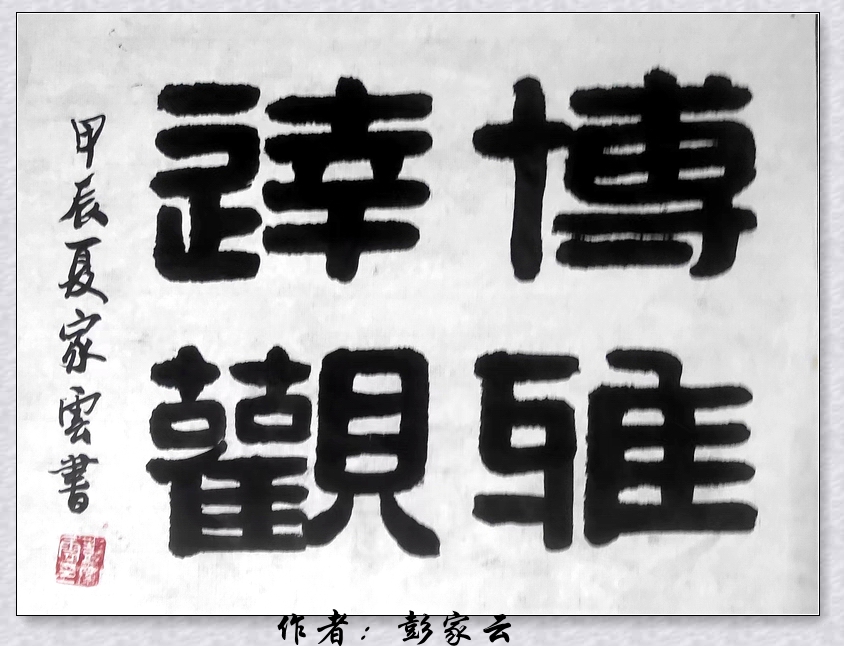 博雅
達觀
甲辰夏家雲書
作者：彭家云